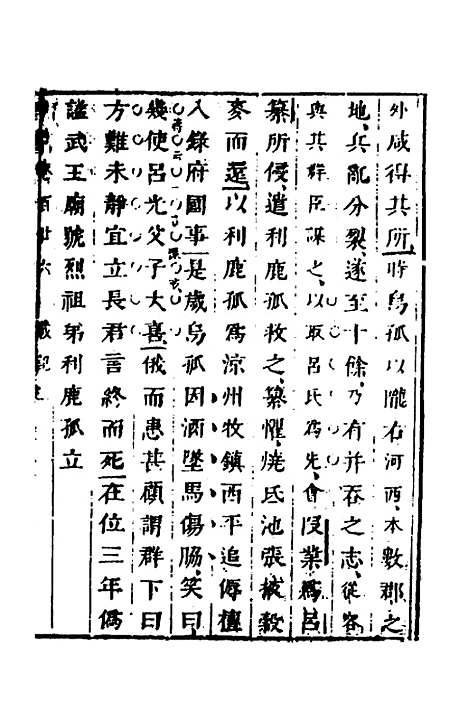 外咸得其所時烏孤以隴右河西本數郡之
地兵亂分裂遂至十餘乃有并吞之志從容
與其群臣謀之以取呂氏爲先會段業爲呂
纂所侵遣利鹿孤救之纂懼燒氐池張掖穀
麥而還以利鹿孤爲涼州牧鎮西平追傉檀
入錄府國事是歲烏孤因酒墜馬傷脇笑曰
幾使呂光父子大喜俄而患甚顧謂群下曰
方難未靜宜立長君言終而死在位三年僞
謚武王廟號烈祖弟利鹿孤立